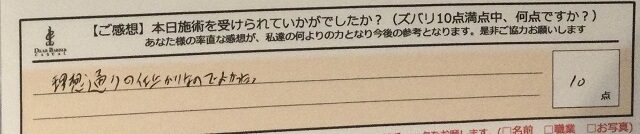 【ご感想】本日施術を受けられていかがでしたか？（ズバリ10点満点中、何点ですか？）
あなた様の率直な感想が、私達の何よりの力となり今後の参考となります。是非ご協力お願いします
DEAR BARBER
CASUAL
理想通りの仕上がりなのでよかった。
10
点
をお願いします（□名前 □職業 □お写真）